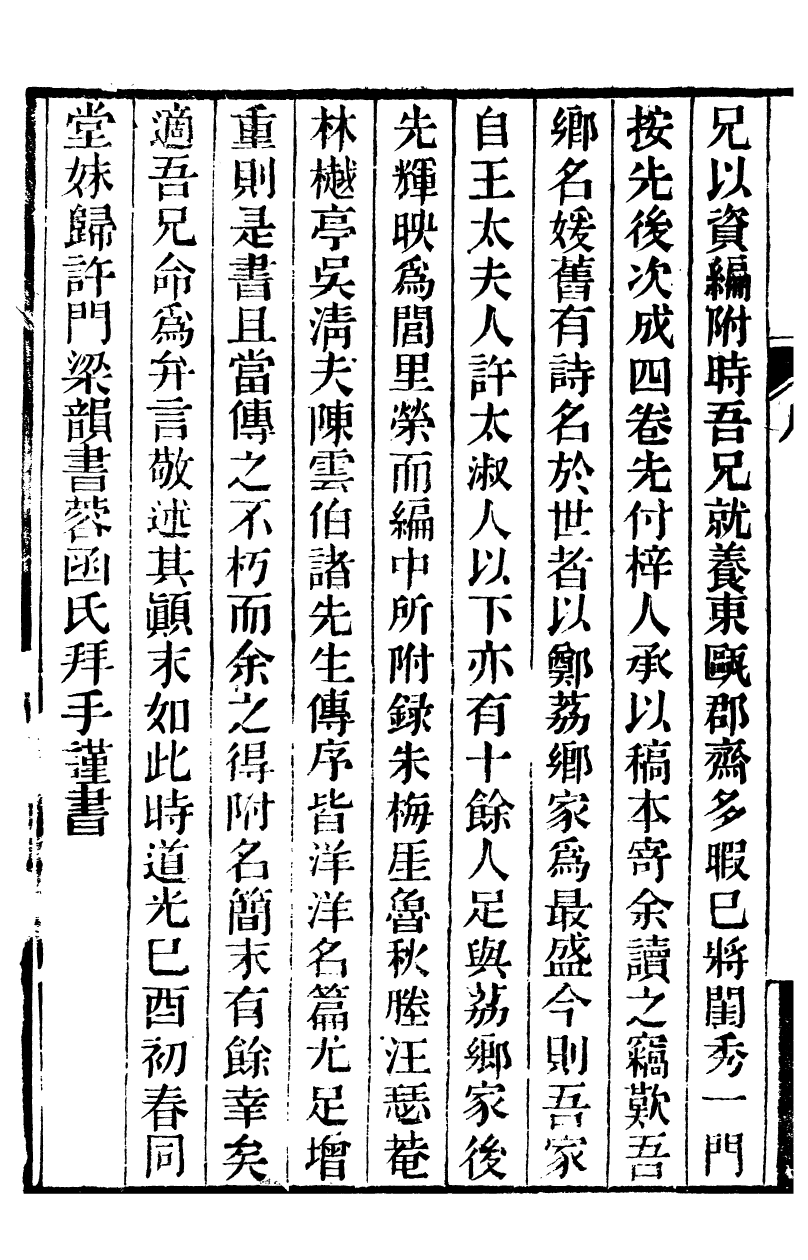 兄以資編附時吾兄就養東甌郡齋多暇已將閨秀一門
按先後次成四卷先付梓人承以稿本寄余讀之竊歎吾
鄉名媛舊有詩名於世者以鄭荔鄉家爲最盛今則吾家
自王太夫人許太淑人以下亦有十餘人足與荔鄉家後
先輝映爲閭里榮而編中所附録朱梅厓魯秋塍汪瑟菴
林樾亭吳清夫陳雲伯諸先生傳序皆洋洋名篇尤足增
重則是書且當傳之不朽而余之得附名簡末有餘幸矣
適吾兄命爲弁言敬述其顚末如此時道光巳酉初春同
堂妹歸許門梁韻書蓉函氏拜手謹書